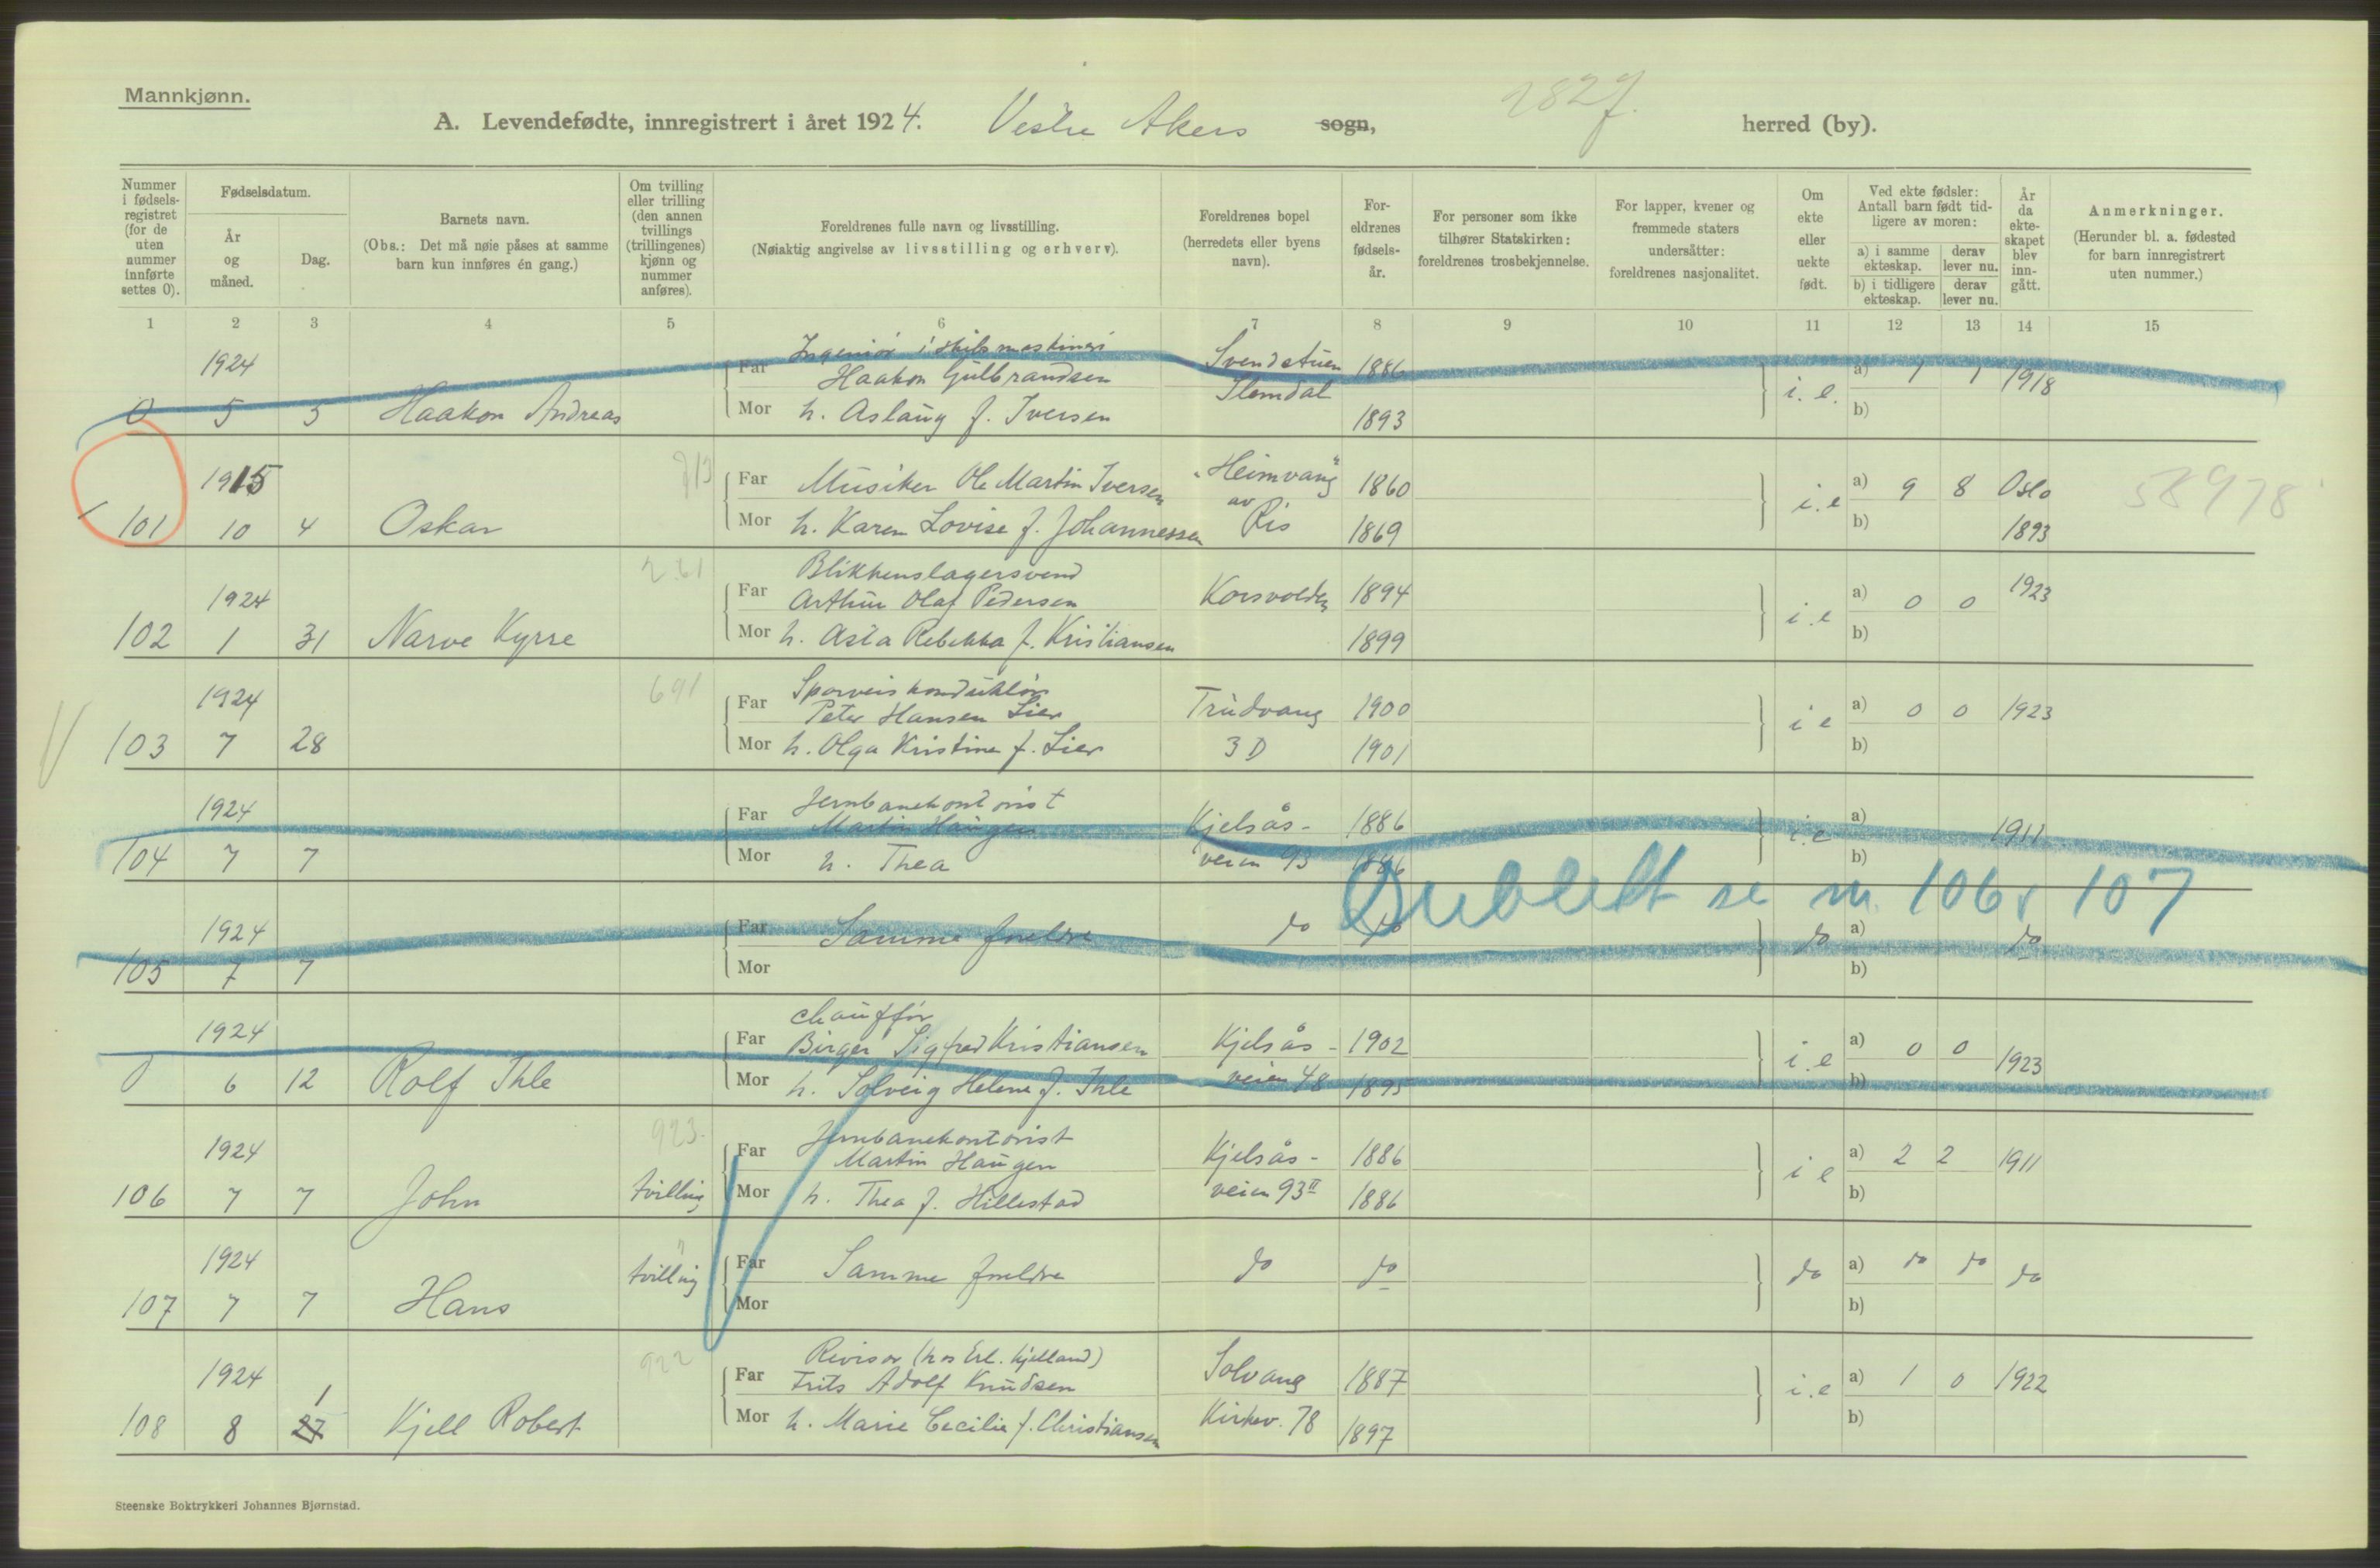 Mannkjønn.
A. Levendefødte, innregistrert i året 1924. Vestre Akers sogn, 2827. herred (by).
Nummer i fødsels-registret (for de uten nummer innførte settes 0).
Fødselsdatum.
År og måned.
Dag.
Barnets navn.
(Obs.: Det må nøie påses at samme barn kun innføres én gang.)
Om tvilling eller trilling (den annen tvillings (trillingenes) kjønn og nummer anføres).
Foreldrenes fulle navn og livsstilling.
(Nøiaktig angivelse av livsstilling og erhverv).
Foreldrenes bopel (herredets eller byens navn).
For-eldrenes fødsels-år.
For personer som ikke tilhører Statskirken: foreldrenes trosbekjennelse.
For lapper, kvener og fremmede staters undersåtter: foreldrenes nasjonalitet.
Om ekte eller uekte født.
Ved ekte fødsler: Antall barn født tid-ligere av moren:
a) i samme ekteskap. derav lever nu.
b) i tidligere ekteskap. derav lever nu.
År da ekte-skapet blev inn-gått.
Anmerkninger.
(Herunder bl. a. fødested for barn innregistrert uten nummer.)
1 2 3 4 5 6 7 8 9 10 11 12 13 14 15
Ingeniør i
1924 Far Haakon Gulbrandsen Svendstuen 1886 i. e. a) 1 1 1918
0 5 5 Haakon Andreas Mor h. Aslaug f. Iversen Slemdal 1893 b)
1915 713 Far Musiker Ole Martin Iversen "Heimvang" 1860 i.e a) 9 8 Oslo 58978
101 10 4 Oskar Mor h. Karen Lovise f. Johannessen av Ris 1869 b) 1893
261 Blikkenslagersvend
1924 Far Arthur Olaf Pedersen Korsvolden 1894 i.e a) 0 0 1923
102 1 31 Narve Kyrre Mor h. Asta Rebekka f. Kristiansen 1899 b)
691 Sporveiskonduktør
1924 Far Peter Hansen Lier Trudvang 1900 i e a) 0 0 1923
103 7 28 Mor h. Olga Kristine f. Lier 3 D 1901 b)
Jernbanekontorist
1924 Far Martin Haugen Kjelsås- 1886 i.e a) 1911
104 7 7 Mor h. Thea veien 93 1886 b)
Dublett se nr. 106 & 107
1924 Far Samme foreldre do do do a) do
105 7 7 Mor b)
chauffør
1924 Far Birger Sigfred Kristiansen Kjelsås- 1902 i.e a) 0 0 1923
0 6 12 Rolf Ihle Mor h. Solveig Helene f. Ihle veien 48 1895 b)
923. Jernbanekontorist
1924 Far Martin Haugen Kjelsås- 1886 i e a) 2 2 1911
106 7 7 John tvilling Mor h. Thea f. Hillestad veien 93 II 1886 b)
1924 " Far Samme foreldre do do do a) do do do
107 7 7 Hans tvilling Mor b)
922 Revisor (hos Erl. Kjelland)
1924 Far Frits Adolf Knudsen Solvang 1887 i.e a) 1 0 1922
108 8 27 1 Kjell Robert Mor h. Marie Cecilie f. Christiansen Kirkev. 78 1897 b)
Steenske Boktrykkeri Johannes Bjørnstad.